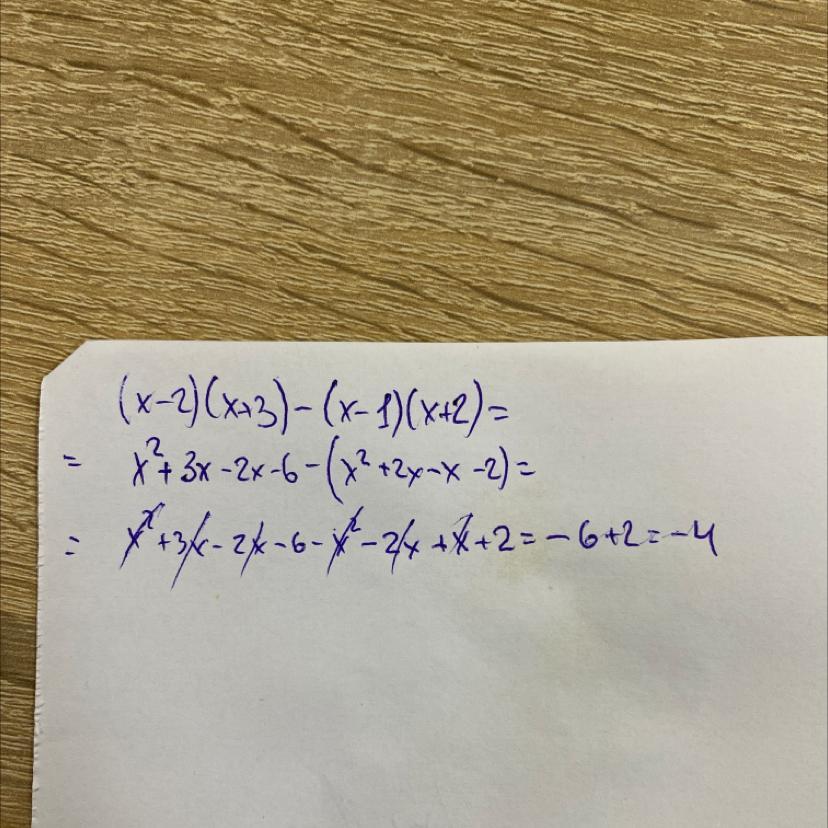 (x-2)(x+3)-(x-1)(x+2)=
= x²+3x-2x-6-(x²+2x-x-2)=
= x²+3x-2x-6-x²-2x+x+2=-6+2=-4